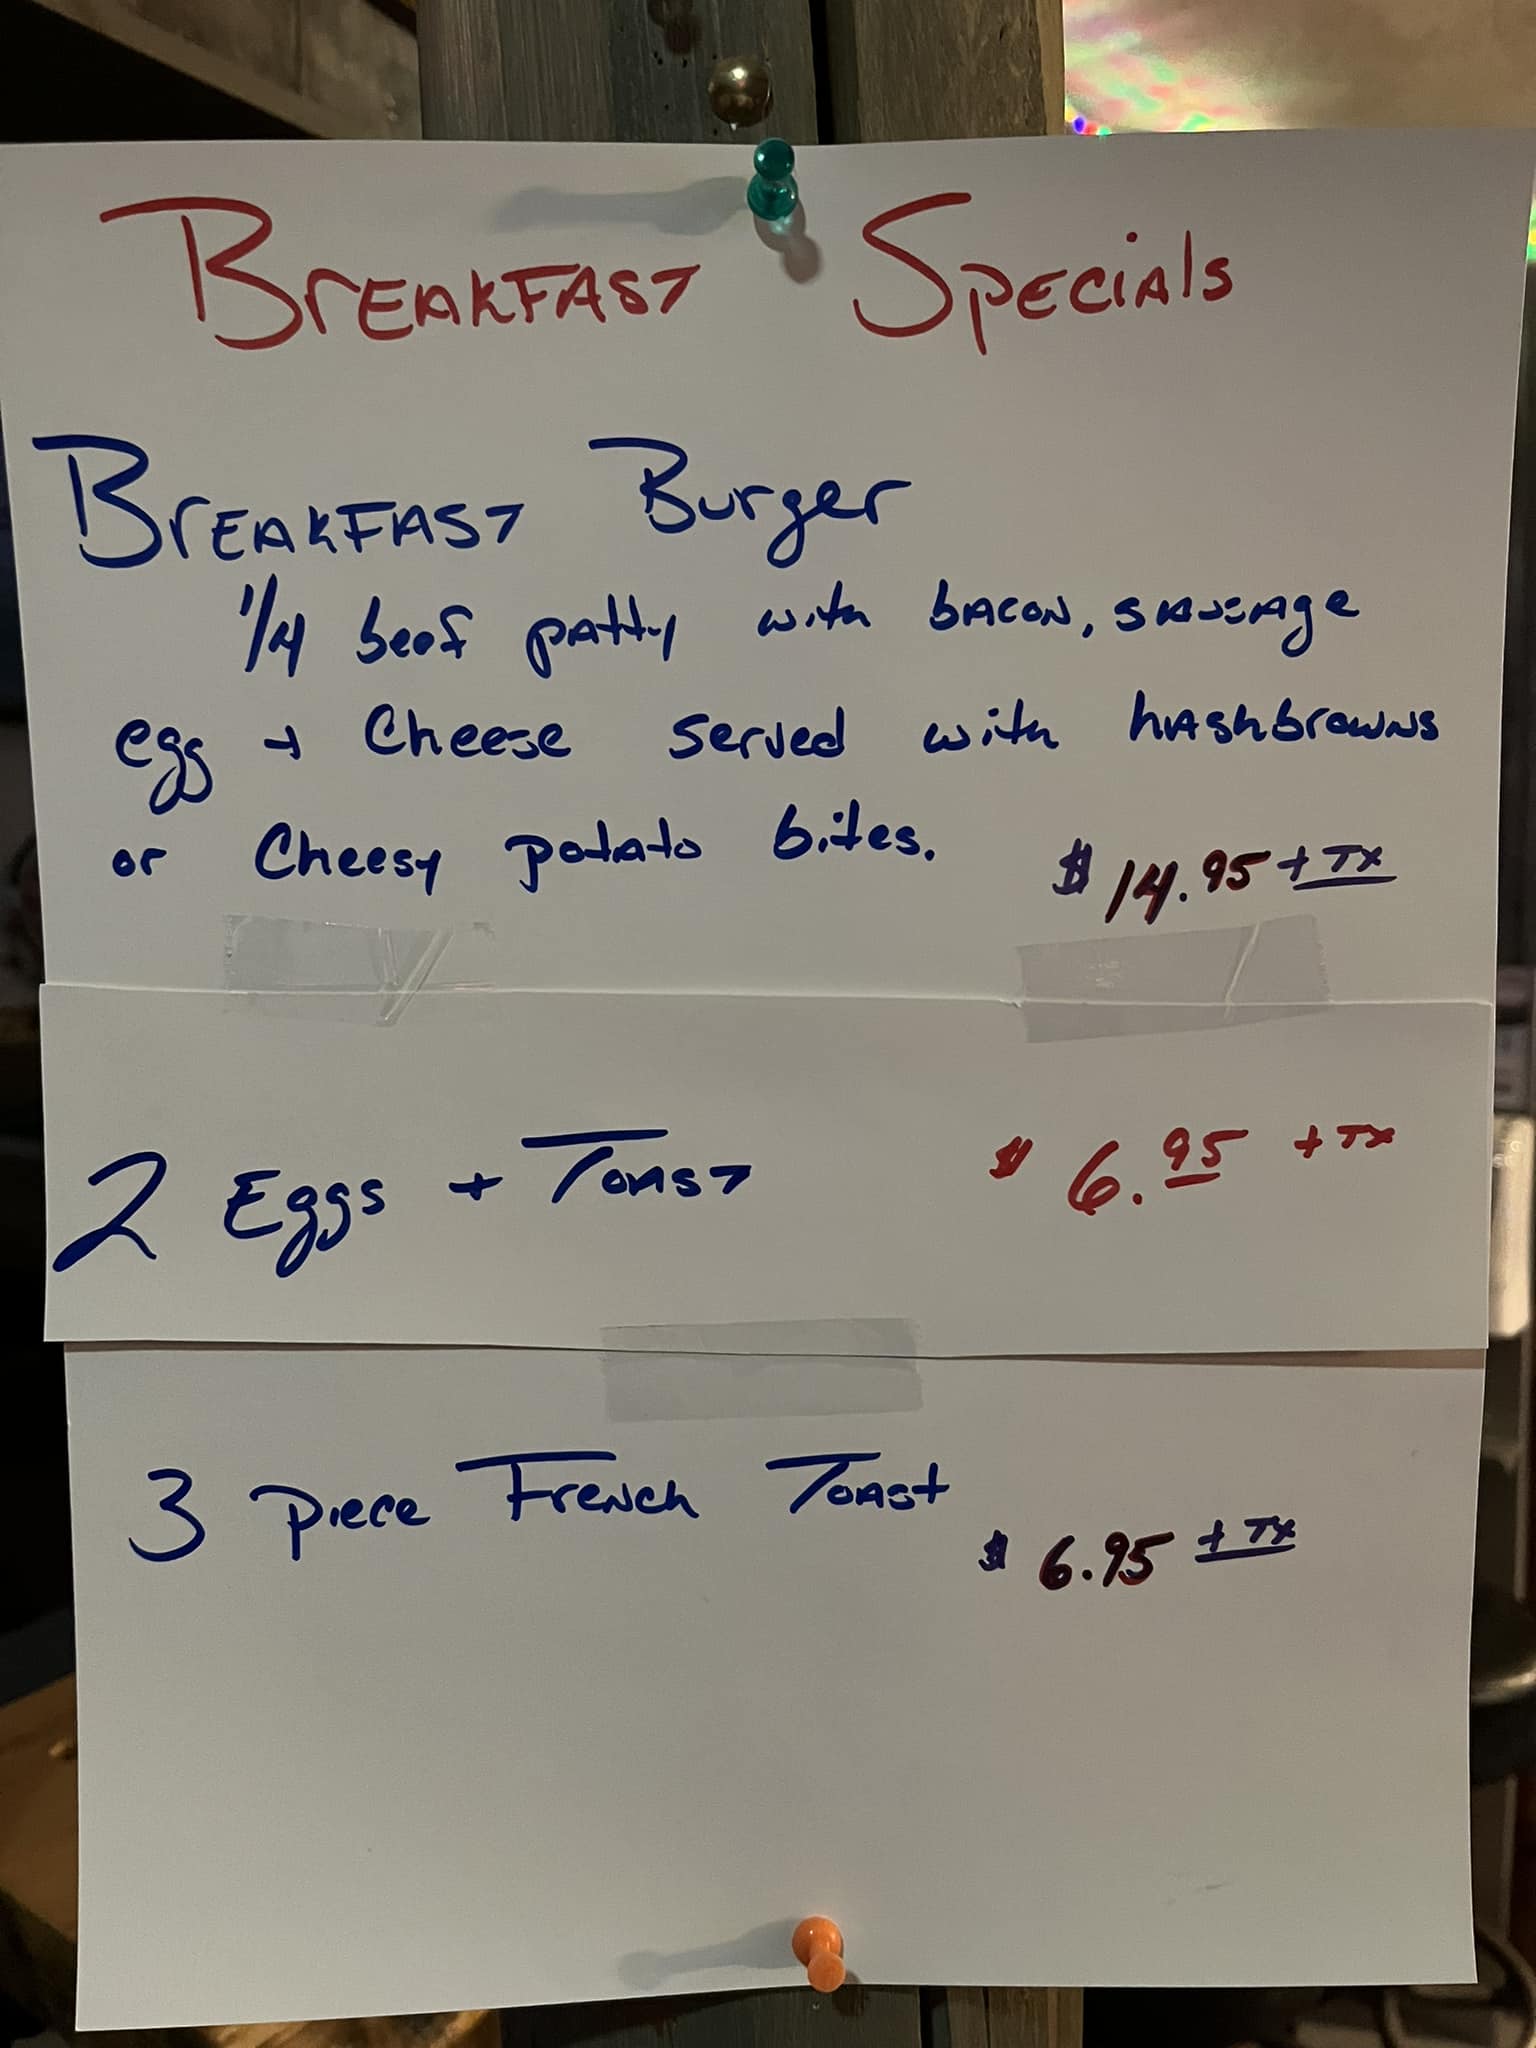 Breakfast Specials
Breakfast Burger
1/4 beef patty with bacon, sausage
egg + Cheese served with hashbrowns
or Cheesy potato bites.
$14.95 + TX
2 Eggs + Toast $6.95 + TX
3 piece French Toast
$6.95 + TX